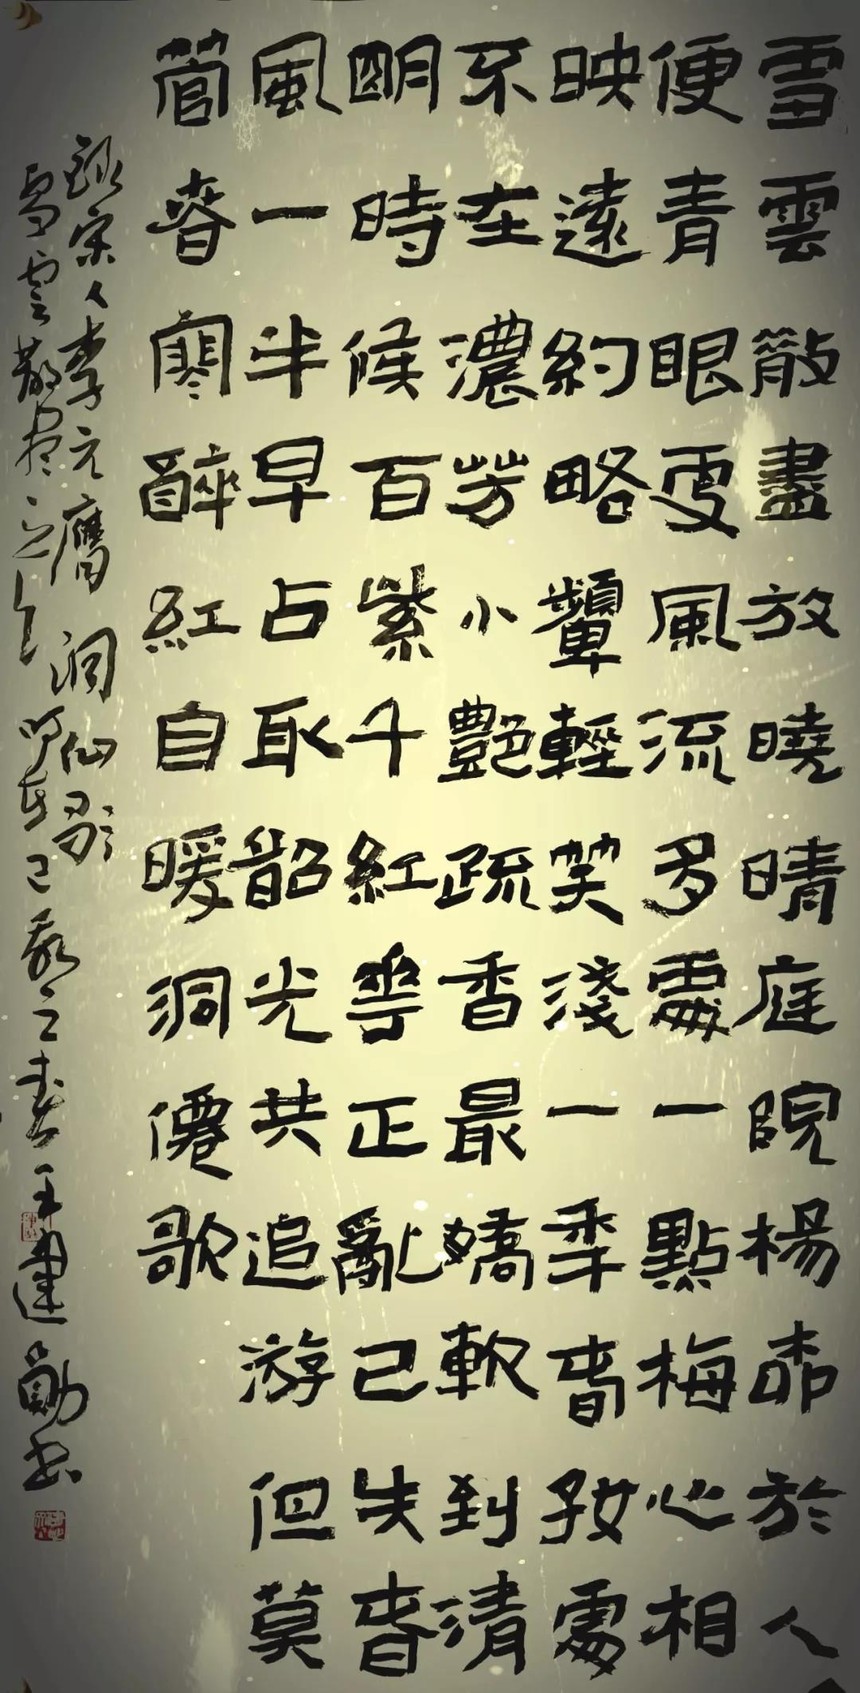 雪雲散盡放曉晴庭院楊柳於人
便青眼更風流多處一點梅心相
映遠約略顰輕笑淺一年春好處
不在濃芳小艷疏香最嬌軟到清
明時候百紫千紅花正亂已失春
風一半早占取韶光共追游但莫
管春寒醉紅自暖洞僊歌
錄宋人李元膺洞仙歌
雪雲散盡之句時在己亥之春王建勛書